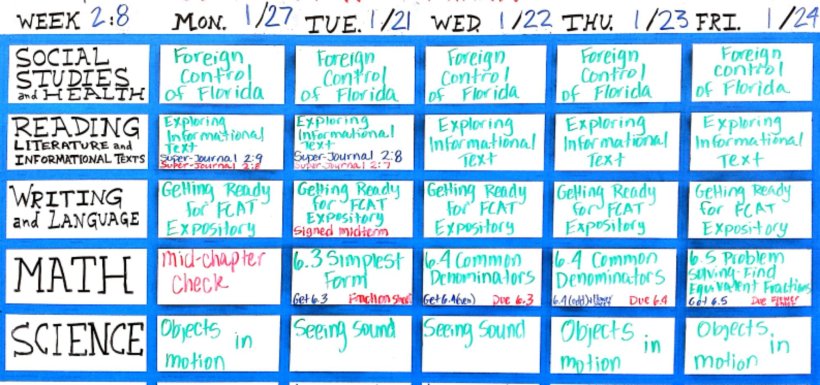 WEEK 2:8 MON. 1/27 TUE. 1/21 WED. 1/22 THU. 1/23 FRI. 1/24
SOCIAL STUDIES and HEALTH
Foreign Control of Florida
Foreign Control of Florida
Foreign Control of Florida
Foreign Control of Florida
Foreign Control of Florida
READING LITERATURE and INFORMATIONAL TEXTS
Exploring Informational Text
Super-Journal 2:9
Super-Journal 2:8
Exploring Informational Text
Super-Journal 2:8
Super-Journal 2:7
Exploring Informational Text
Exploring Informational Text
Exploring Informational Text
WRITING and LANGUAGE
Getting Ready for FCAT Expository
Getting Ready for FCAT Expository
Signed midterm
Getting Ready for FCAT Expository
Getting Ready for FCAT Expository
Getting Ready for FCAT Expository
MATH
mid-chapter check
6.3 Simplest Form
Get 6.3 Fraction
6.4 Common Denominators
Get 6.4 Due 6.3
6.4 Common Denominators
6.4 (odd) Due 6.4
6.5 Problem Solving-Find Equivalent Fractions
Got 6.5 Due
SCIENCE
Objects in motion
Seeing Sound
Seeing Sound
Objects in motion
Objects in motion